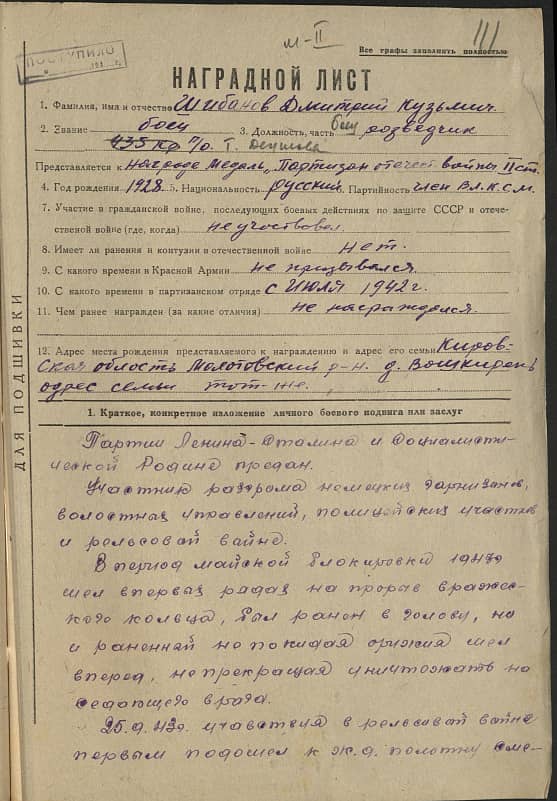 М-II
111
ПОСТУПИЛО
Все графы заполнять полностью
НАГРАДНОЙ ЛИСТ
1. Фамилия, имя и отчество Шибанов Дмитрий Кузьмич
2. Звание боец 3. Должность, часть бпу розведчик
435 п/о. Т.
Представляется к награде Медаль „Партизан отечест войны II ст.
4. Год рождения 1928 5. Национальность русский Партийность член ВЛ.К.С.М.
7. Участие в гражданской войне, последующих боевых действиях по защите СССР и отече-
ственной войне (где, когда) не участвовал.
8. Имеет ли ранения и контузии в отечественной войне нет.
9. С какого времени в Красной Армии не призывался.
10. С какого времени в партизанском отряде с Июля 1942 г.
11. Чем ранее награжден (за какие отличия) не награждался.
12. Адрес места рождения представляемого к награждению и адрес его семьи Киров-
ская область Молотовский р-н. д.
адрес семьи тот-же.
1. Краткое, конкретное изложение личного боевого подвига или заслуг
Партии Ленина-Сталина и Социалисти-
ческой Родине предан.
Участник разгрома немецких гарнизонов,
волостных управлений, полицейских участков
и рельсовой войне.
В период майской блокировки 1943г
шел впервых рядах на прорыв вражес-
кого кольца, был ранен в голову, но
и раненней не покидая оружия шел
вперед, непрекращая уничтожать на
седающего врага.
25.9.43г. участвуя в рельсовой войне
первым подошел к ж.д. полотну сме-
ДЛЯ ПОДШИВКИ